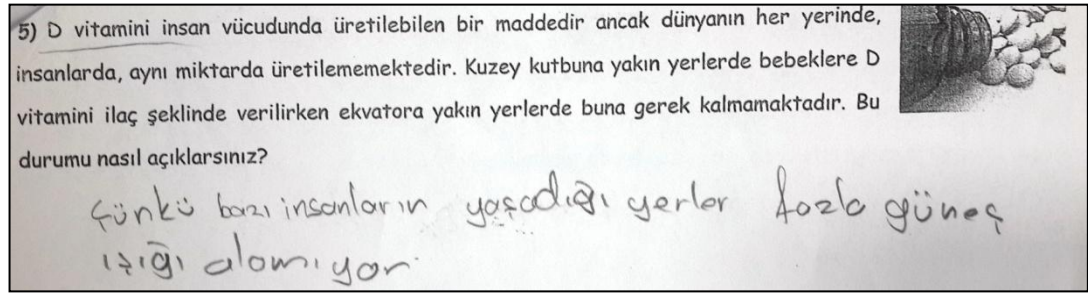 5) D vitamini insan vücudunda üretilebilen bir maddedir ancak dünyanın her yerinde,
insanlarda, aynı miktarda üretilememektedir. Kuzey kutbuna yakın yerlerde bebeklere D
vitamini ilaç şeklinde verilirken ekvatora yakın yerlerde buna gerek kalmamaktadır. Bu
durumu nasıl açıklarsınız?
Çünkü bazı insanların yaşadığı yerler fazla güneş
ışığı alamıyor